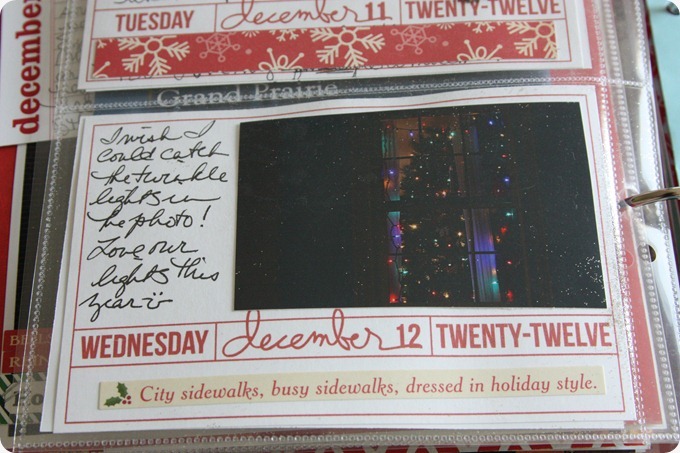 TUESDAY december 11 TWENTY-TWELVE
december
Grand Prairie
I wish I
could catch
the twinkle
lights in
the photo!
Love our
lights this
year
WEDNESDAY december 12 TWENTY-TWELVE
City sidewalks, busy sidewalks, dressed in holiday style.